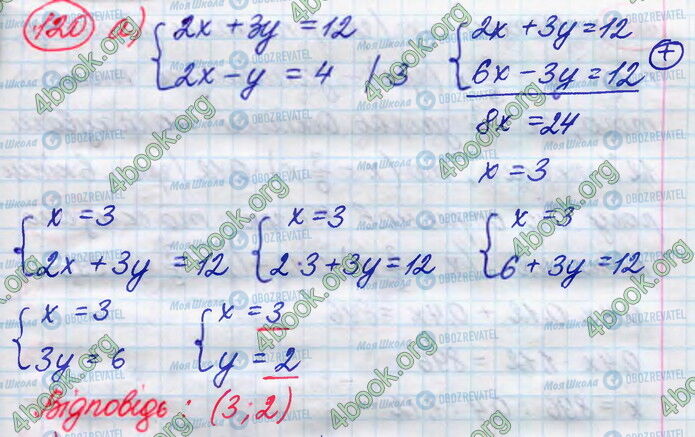 120 а) { 2x + 3y = 12    { 2x + 3y = 12
{ 2x - y = 4 / 3    { 6x - 3y = 12 +
8x = 24
x = 3
{ x = 3    { x = 3    { x = 3
{ 2x + 3y = 12    { 2·3 + 3y = 12    { 6 + 3y = 12
{ x = 3    { x = 3
{ 3y = 6    { y = 2
Відповідь: (3; 2)
4book.org
Моя Школа
OBOZREVATEL